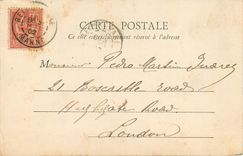 CARTE POSTALE
Ce côté est exclusivement réservé à l'adresse
Monsieur Pedro Martin Suarez
21 Boscastle Road
Highgate Road
London